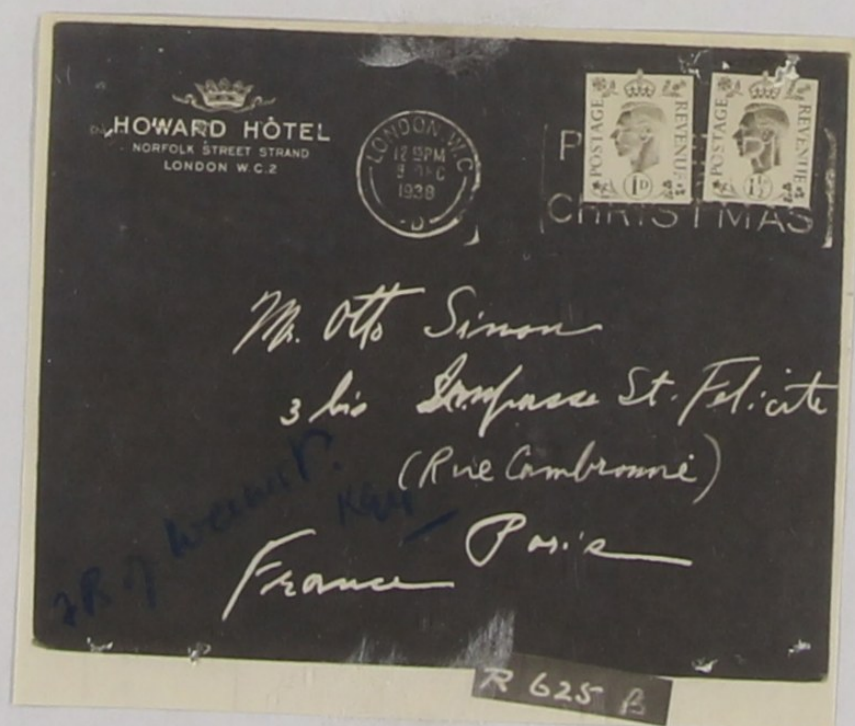 HOWARD HÔTEL
NORFOLK STREET STRAND
LONDON W.C.2
LONDON. W.C.
12 PM
DEC
1938
D
POSTAGE REVENUE
1D
POSTAGE REVENUE
1½D
CHRISTMAS
Mr. Otto Simon
3 bis Impasse St. Felicite
(Rue Cambronne)
Paris
France
R 625 B